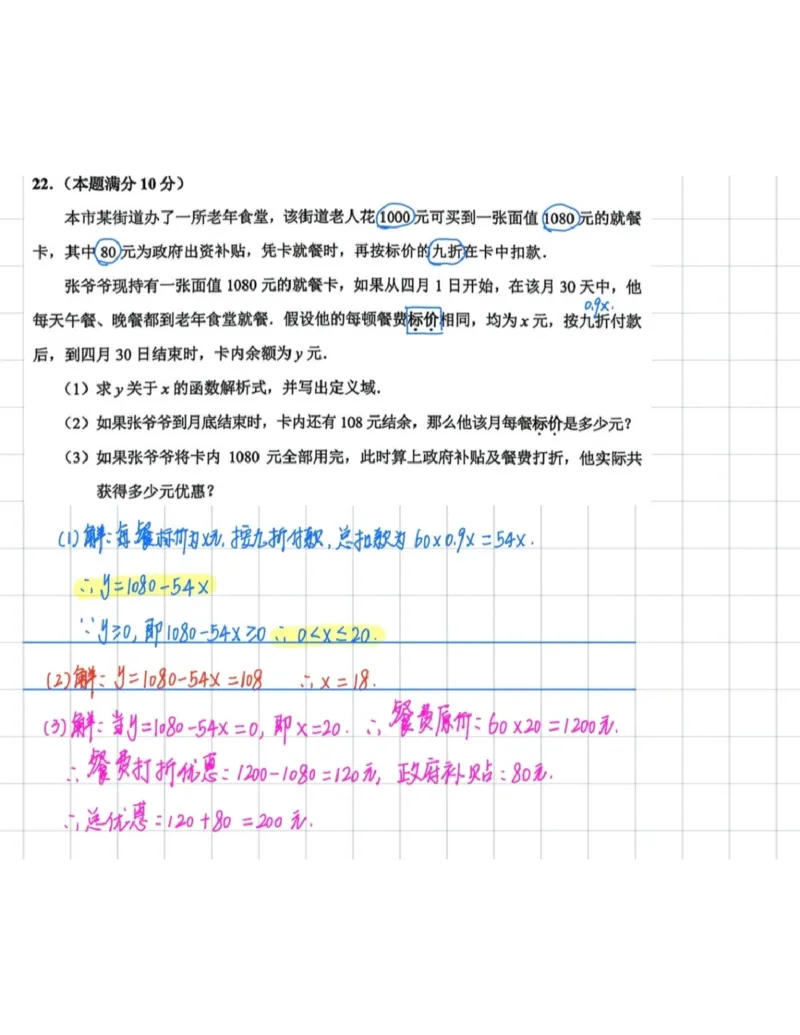 22.（本题满分10分）
本市某街道办了一所老年食堂，该街道老人花1000元可买到一张面值1080元的就餐
卡，其中80元为政府出资补贴，凭卡就餐时，再按标价的九折在卡中扣款．
张爷爷现持有一张面值1080元的就餐卡，如果从四月1日开始，在该月30天中，他
0.9x.
每天午餐、晚餐都到老年食堂就餐．假设他的每顿餐费标价相同，均为x元，按九折付款
后，到四月30日结束时，卡内余额为y元．
（1）求y关于x的函数解析式，并写出定义域．
（2）如果张爷爷到月底结束时，卡内还有108元结余，那么他该月每餐标价是多少元？
（3）如果张爷爷将卡内1080元全部用完，此时算上政府补贴及餐费打折，他实际共
获得多少元优惠？
(1)解:每餐标价为x元,按九折付款,总扣款为60×0.9x=54x.
∴y=1080-54x
∵y≥0,即1080-54x≥0∴0<x≤20.
(2)解:y=1080-54x=108 ∴x=18.
(3)解:当y=1080-54x=0,即x=20.∴餐费原价:60×20=1200元.
∴餐费打折优惠:1200-1080=120元,政府补贴:80元.
∴总优惠:120+80=200元.